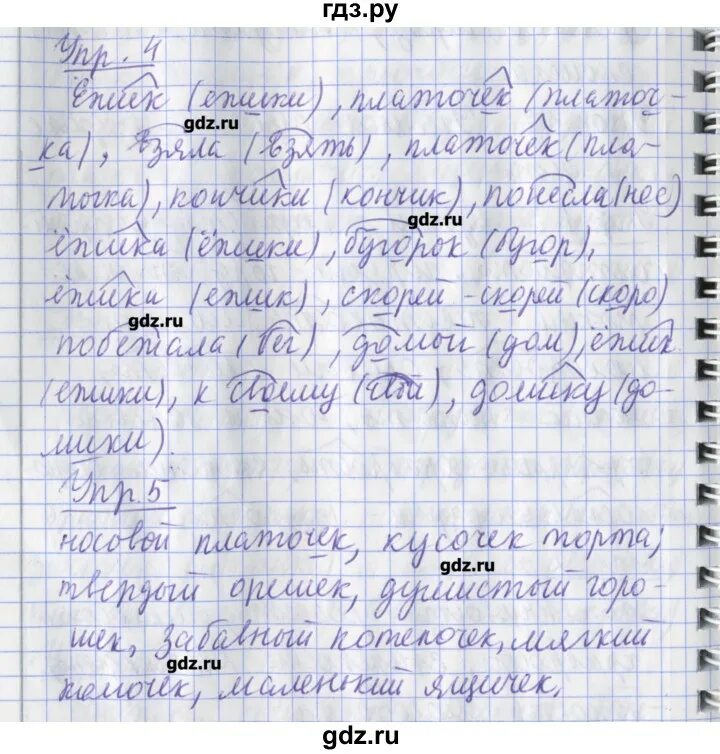 гдз.ру
Упр. 4
Ёжик (ежики), платочек (платоч-
gdz.ru
ка), взяла (взять), платочек (пла-
точка), кончики (кончик), понесла (нес)
gdz.ru
ёжика (ёжики), бугорок (бугор),
ёжики (ежик), скорей-скорей (скоро)
gdz.ru
побежала (бег), домой (дом), ёжик
gdz.ru
(ежики), к своему (свой), домику (до-
мики).
Упр. 5
носовой платочек, кусочек торта,
gdz.ru
твердый орешек, душистый горо-
шек, забавный котеночек, мягкий
gdz.ru
комочек, маленький ящичек,
gdz.ru